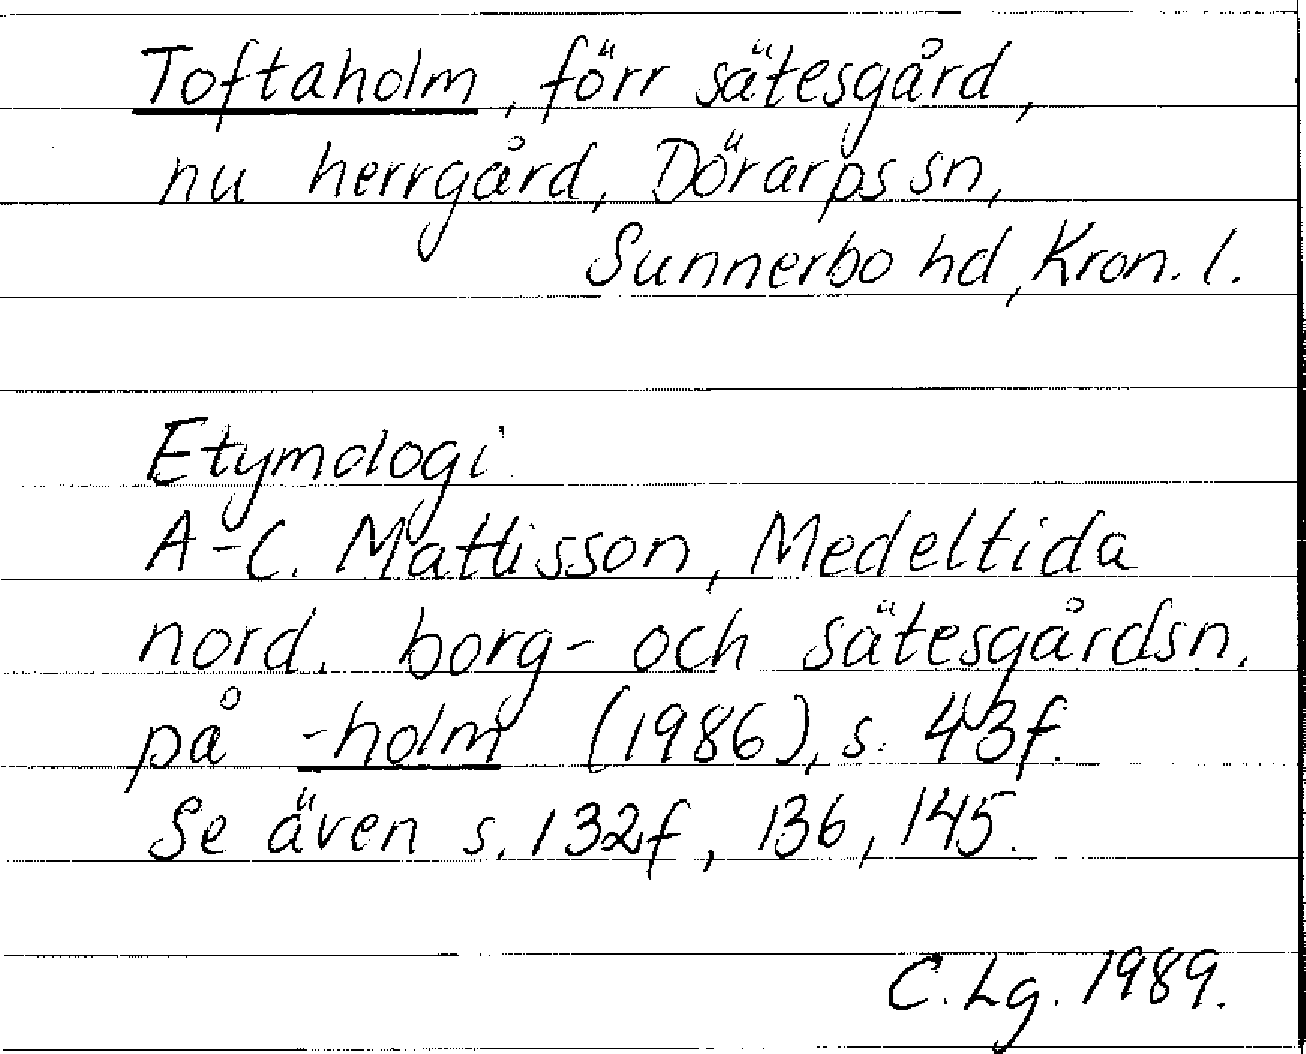 Toftaholm, förr sätesgård,
nu herrgård, Dörarps sn,
Sunnerbo hd, Kron. l.
Etymologi.
A-C. Mattisson, Medeltida
nord. borg- och sätesgårdsn.
på -holm (1986), s. 43f.
Se även s. 132f, 136, 145.
C. Lg. 1989.